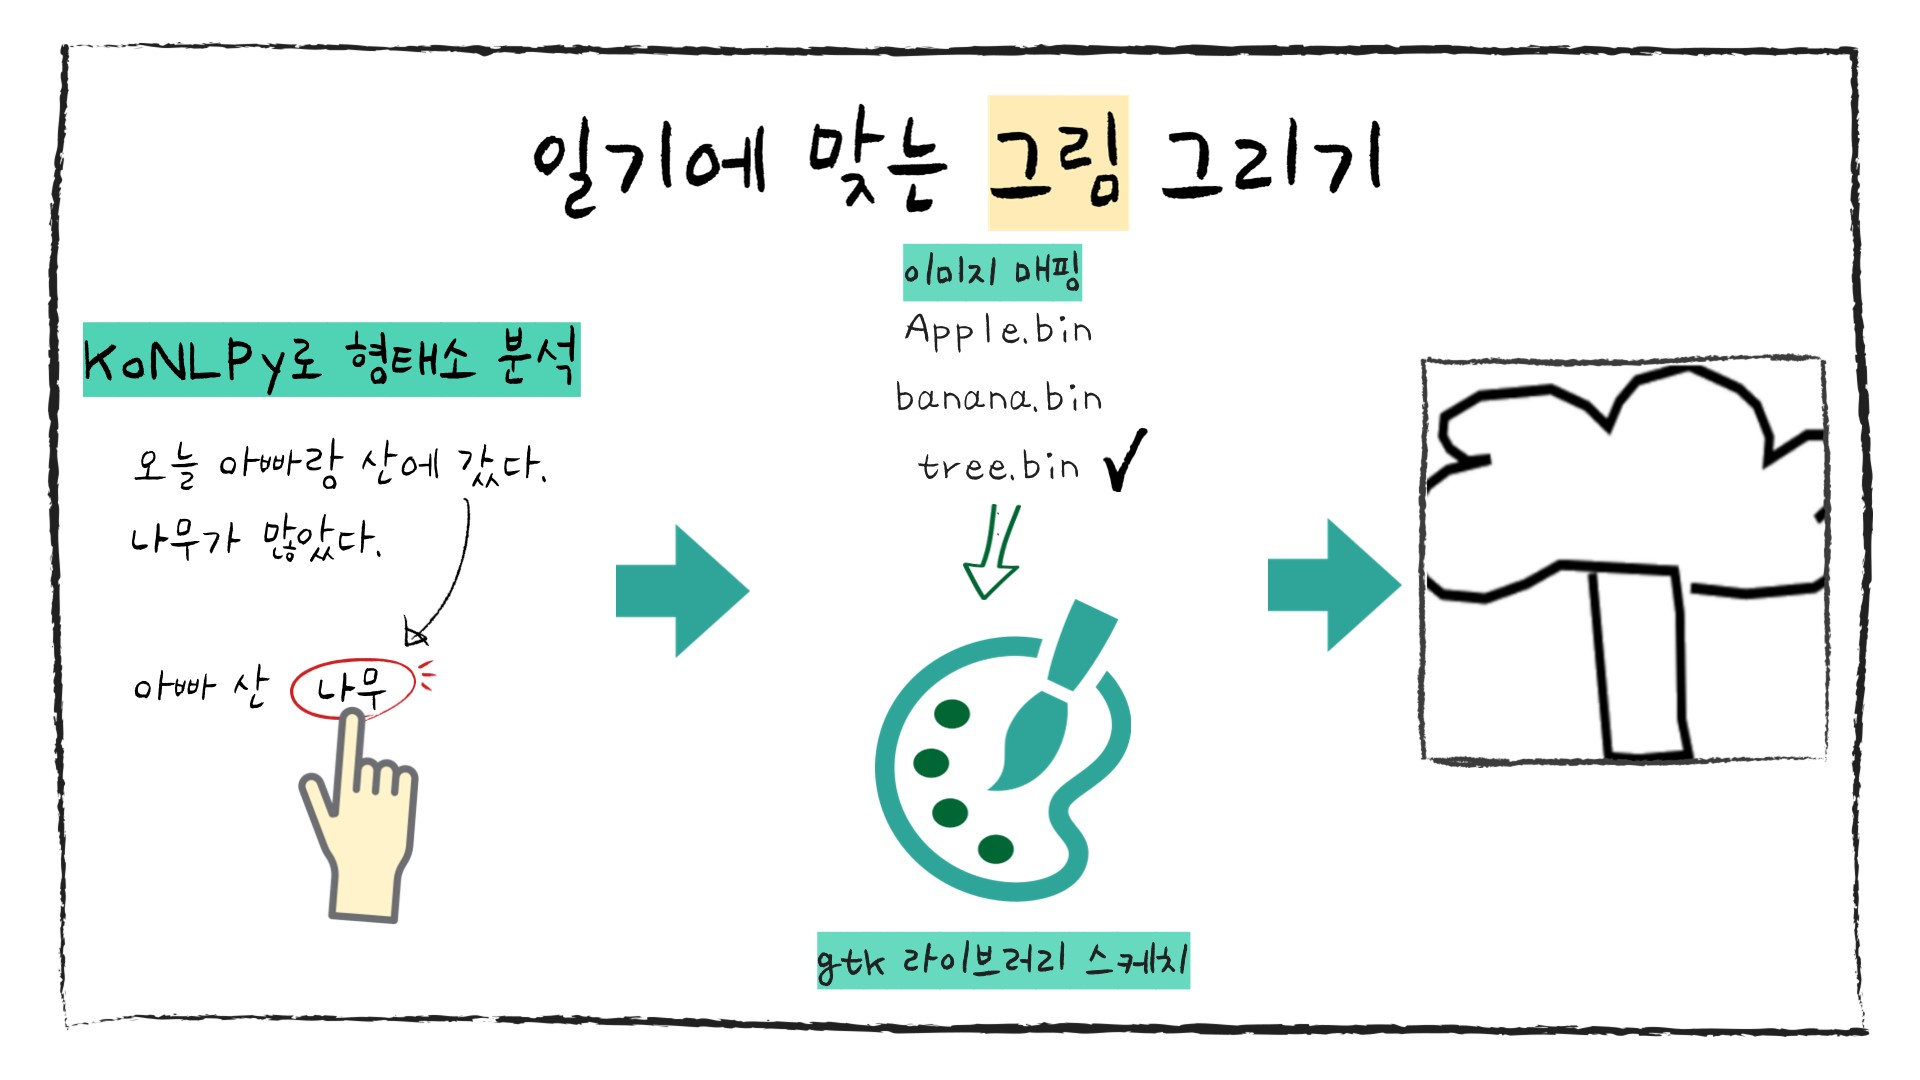 일기에 맞는 그림 그리기
KoNLPy로 형태소 분석
오늘 아빠랑 산에 갔다.
나무가 많았다.
아빠 산 나무
이미지 매핑
Apple.bin
banana.bin
tree.bin
gtk 라이브러리 스케치